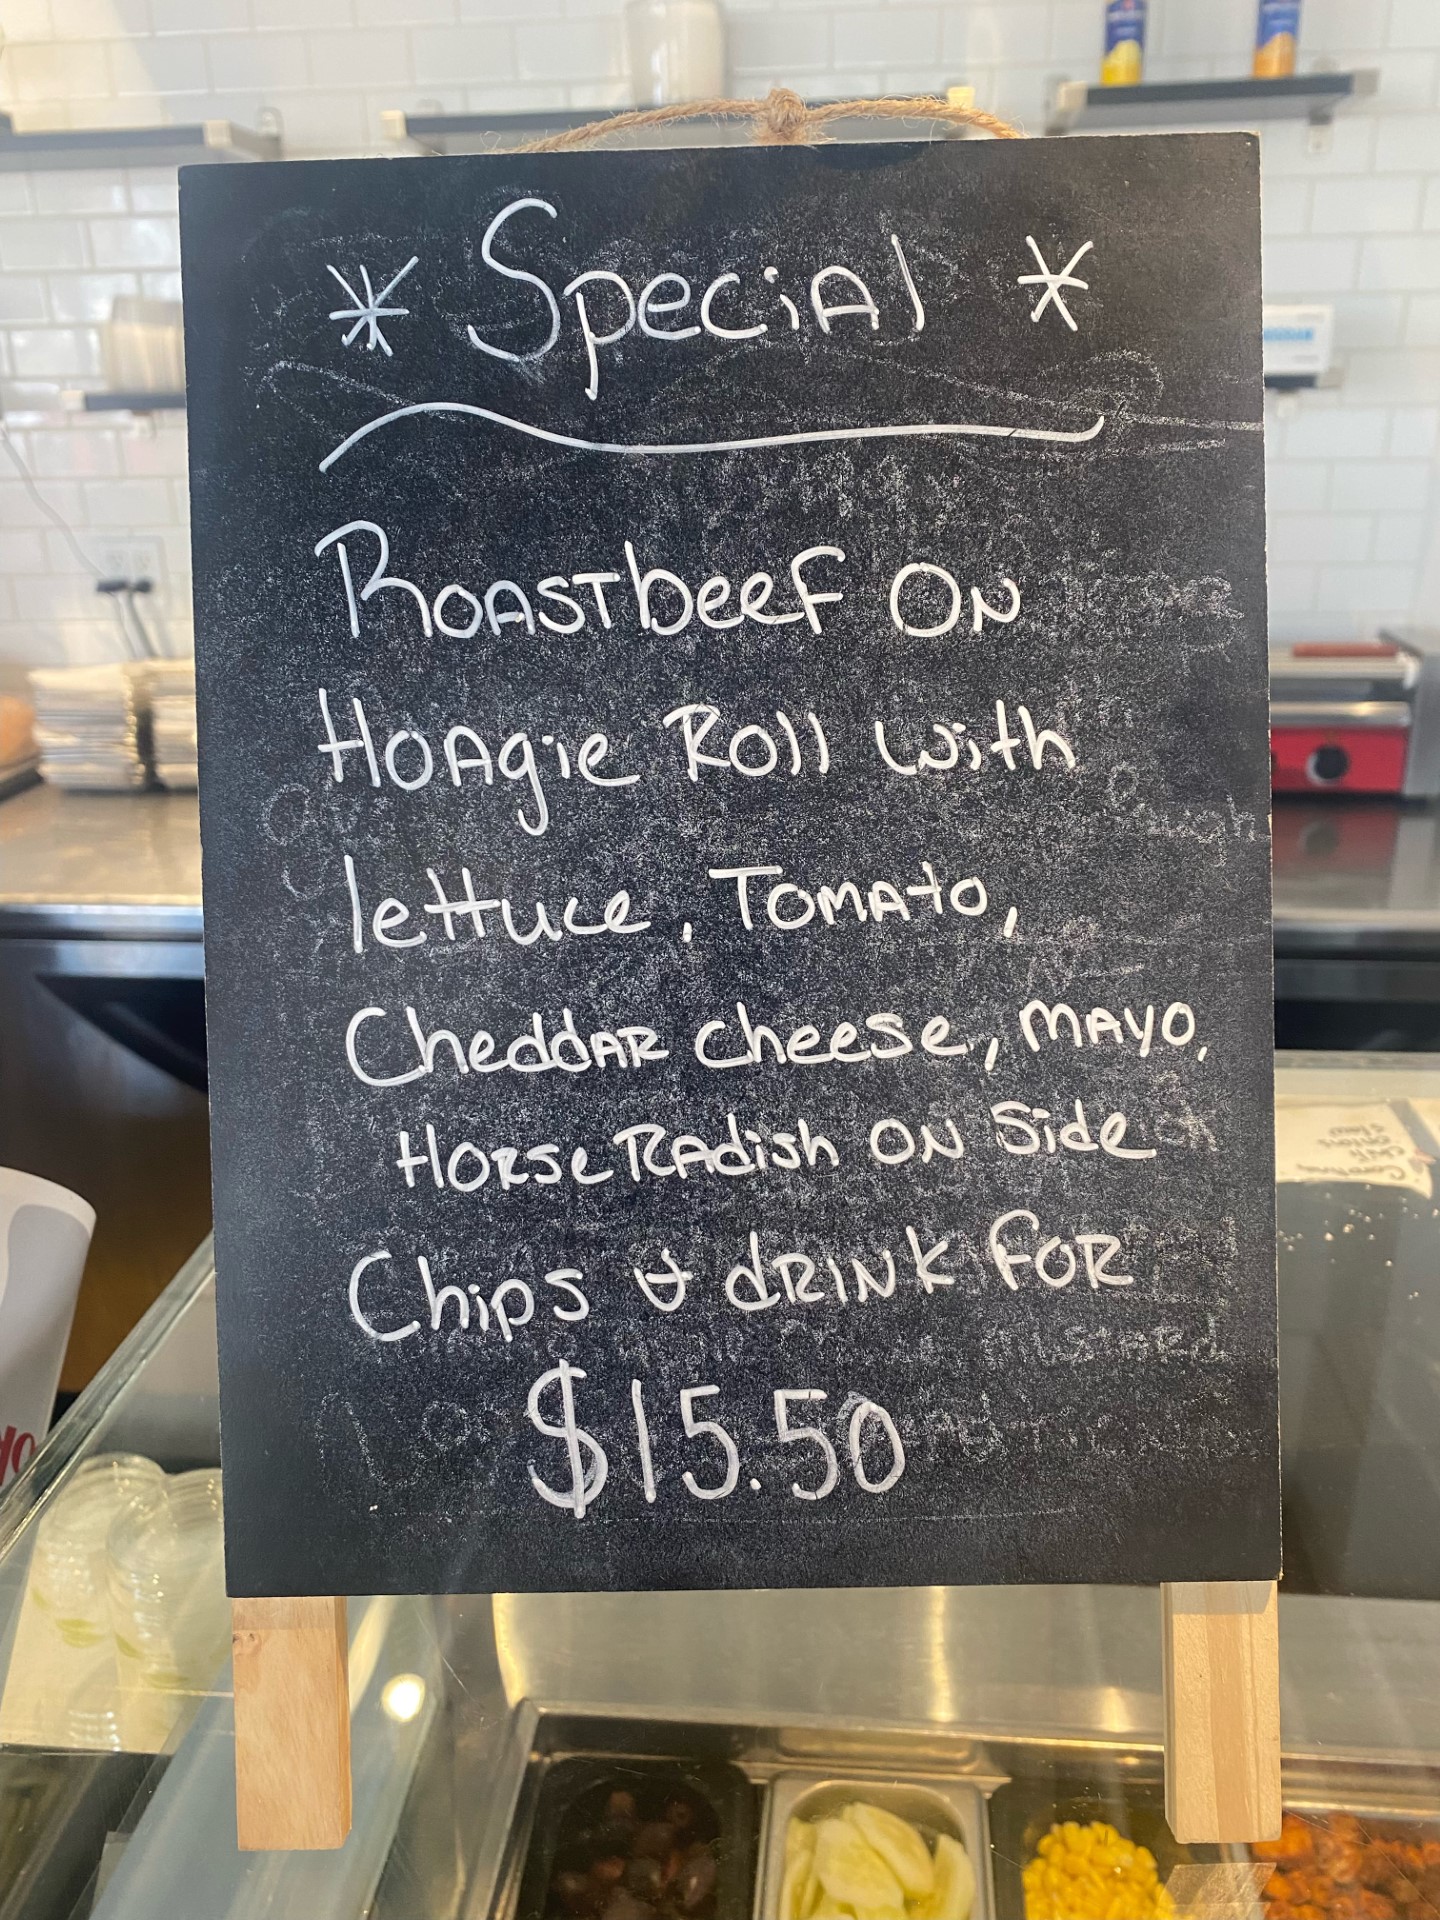 * Special *
Roastbeef on
Hoagie Roll with
lettuce, Tomato,
Cheddar cheese, mayo,
Horse Radish on side
Chips & drink for
$15.50